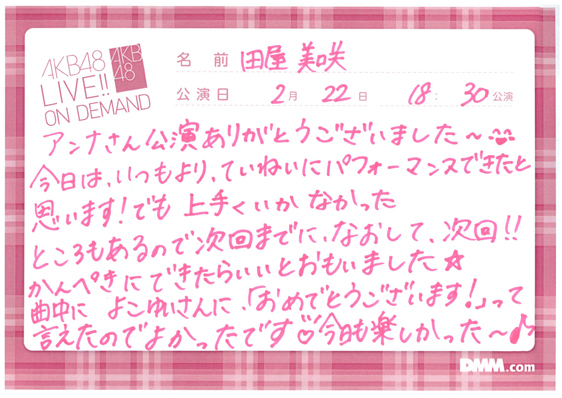 AKB48
LIVE!!
ON DEMAND
AKB
48
名前 田屋 美咲
公演日 2月 22日 18:30公演
アンナさん公演ありがとうございました~
今日は、いつもより、ていねいにパフォーマンスできたと
思います!でも 上手くいかなかった
ところもあるので次回までに、なおして、次回!!
かんぺきにできたらいいとおもいました☆
曲中に よこゆいさんに、「おめでとうございます!」って
言えたのでよかったです♡今日も楽しかった~♪
DMM.com